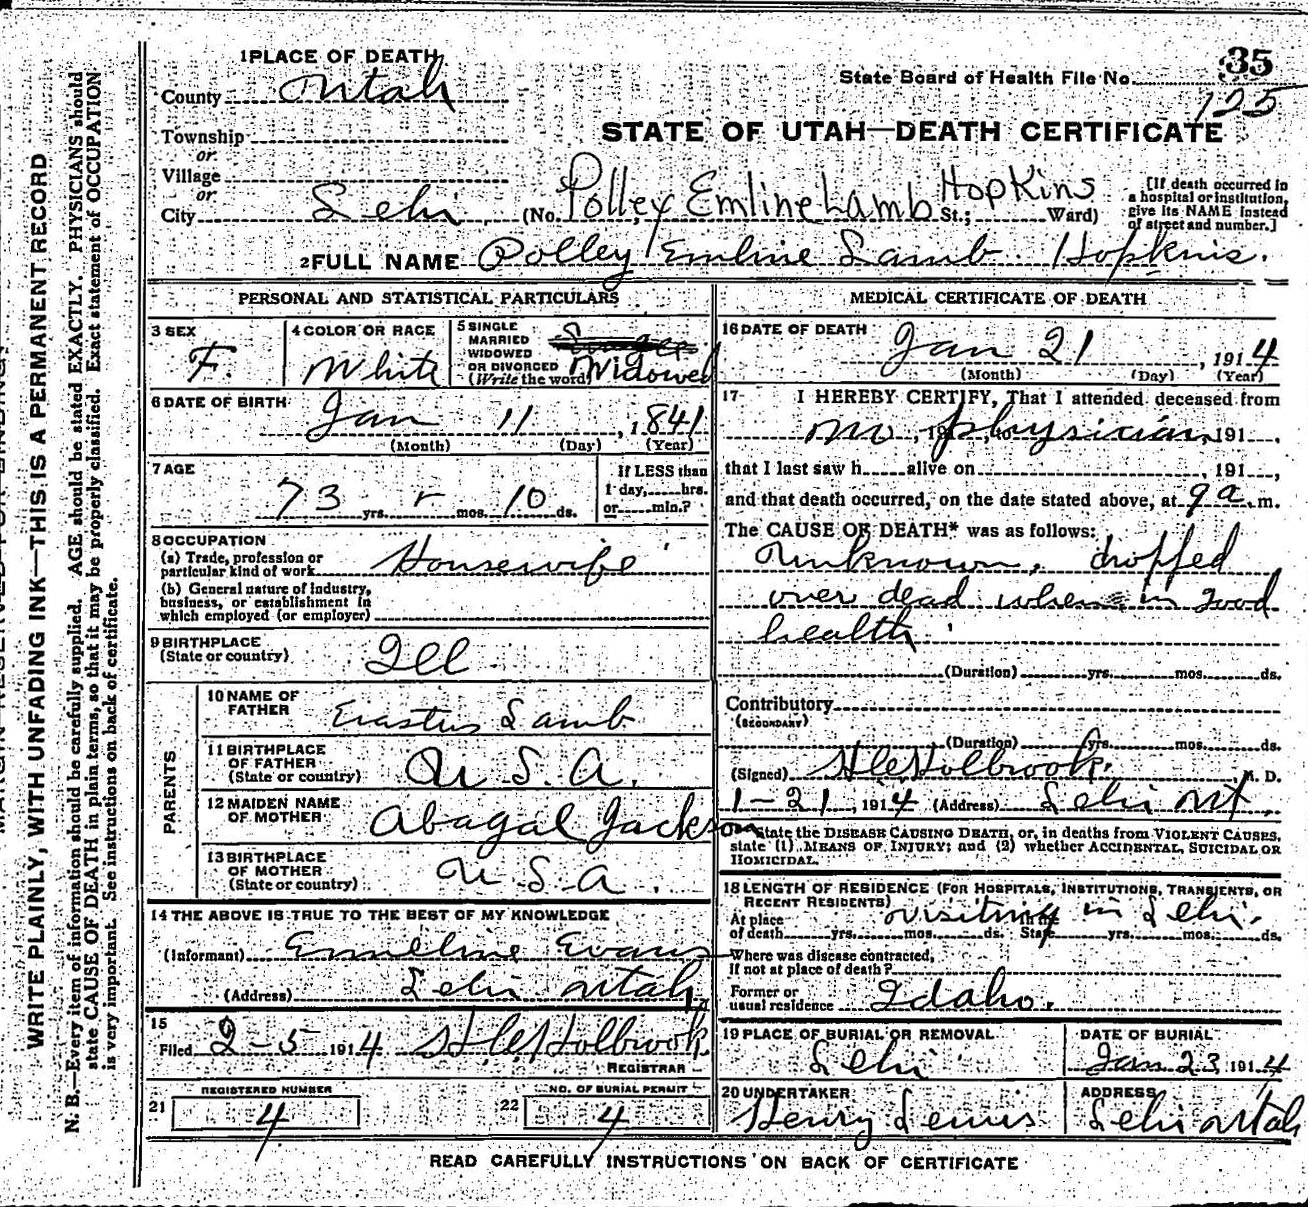 35
State Board of Health File No.
125
1 PLACE OF DEATH
County Utah
STATE OF UTAH—DEATH CERTIFICATE
Township
or
Village
or
City Lehi (No. Polley Emline Lamb Hopkins St.; Ward)
[If death occurred in
a hospital or institution,
give its NAME instead
of street and number.]
2 FULL NAME Polley Emline Lamb Hopkins.
PERSONAL AND STATISTICAL PARTICULARS
3 SEX
F.
4 COLOR OR RACE
White
5 SINGLE
MARRIED
WIDOWED
OR DIVORCED
(Write the word)
Widowed
6 DATE OF BIRTH
Jan 11, 1841
(Month) (Day) (Year)
7 AGE
73 yrs. mos. 10 ds.
If LESS than
1 day, hrs.
or min.?
8 OCCUPATION
(a) Trade, profession or
particular kind of work Housewife
(b) General nature of industry,
business, or establishment in
which employed (or employer)
9 BIRTHPLACE
(State or country) Ill
PARENTS
10 NAME OF
FATHER Erastus Lamb
11 BIRTHPLACE
OF FATHER
(State or country) U. S. A.
12 MAIDEN NAME
OF MOTHER Abagal Jackson
13 BIRTHPLACE
OF MOTHER
(State or country) U. S. A.
14 THE ABOVE IS TRUE TO THE BEST OF MY KNOWLEDGE
(Informant) Emmeline Evans
(Address) Lehi Utah
15
Filed 2-5 1914 Holbrook
REGISTRAR
REGISTERED NUMBER
21 4
NO. OF BURIAL PERMIT
22 4
MEDICAL CERTIFICATE OF DEATH
16 DATE OF DEATH
Jan 21, 1914
(Month) (Day) (Year)
17 I HEREBY CERTIFY, That I attended deceased from
no, 191, to physician, 191,
that I last saw h alive on, 191,
and that death occurred, on the date stated above, at 9 a. m.
The CAUSE OF DEATH* was as follows:
Unknown, dropped
over dead when in good
health.
(Duration) yrs. mos. ds.
Contributory
(SECONDARY)
(Duration) yrs. mos. ds.
(Signed) Holbrook, M. D.
1-21, 1914 (Address) Lehi Ut,
*State the DISEASE CAUSING DEATH, or, in deaths from VIOLENT CAUSES,
state (1) MEANS OF INJURY; and (2) whether ACCIDENTAL, SUICIDAL OR
HOMICIDAL.
18 LENGTH OF RESIDENCE (FOR HOSPITALS, INSTITUTIONS, TRANSIENTS, OR
RECENT RESIDENTS) visiting in Lehi.
At place
of death yrs. mos. ds. State yrs. mos. ds.
Where was disease contracted,
if not at place of death?
Former or
usual residence Idaho.
19 PLACE OF BURIAL OR REMOVAL
Lehi
DATE OF BURIAL
Jan 23 1914
20 UNDERTAKER
Henry Lewis
ADDRESS
Lehi Utah
READ CAREFULLY INSTRUCTIONS ON BACK OF CERTIFICATE
WRITE PLAINLY, WITH UNFADING INK—THIS IS A PERMANENT RECORD
N. B.—Every item of information should be carefully supplied. AGE should be stated EXACTLY. PHYSICIANS should
state CAUSE OF DEATH in plain terms, so that it may be properly classified. Exact statement of OCCUPATION
is very important. See instructions on back of certificate.